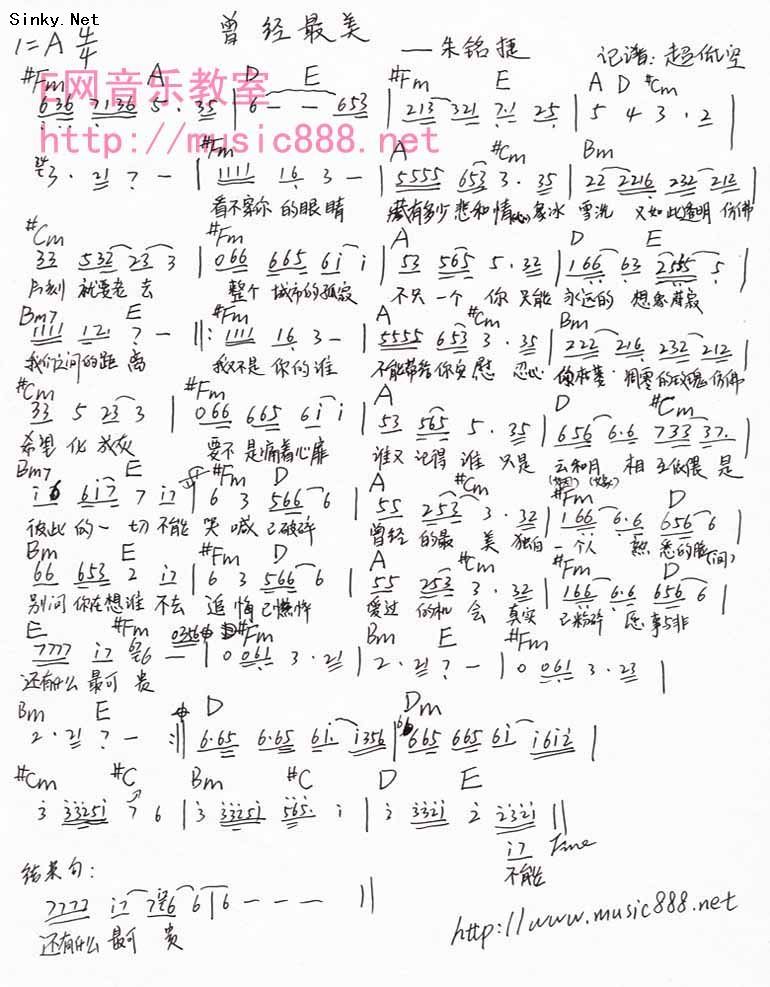 Sinky.Net
1=A 4/4 曾经最美 —朱铭捷 记谱:超低空
E网音乐教室
http://music888.net
#Fm A D E #Fm E A D #Cm
636 7136 5· 35 | 6 - - 653 | 213 321 7·1 25 | 5 4 3 · 2 |
#Fm A #Cm Bm
3· 21 7 - | 1111 16 3 - | 5555 653 3· 35 | 22 2216 232 212 |
看不穿你的眼睛 藏有多少悲和情 冰雪洗 又如此透明 仿佛
#Cm #Fm A D E
33 532 23 3 | 066 665 61 1 | 53 565 5· 32 | 166 63 2555 5 |
片刻就要老去 整个城市的孤寂 不只一个你 只能永远的想象
Bm7 E #Fm A #Cm Bm
1111 121 7 - ‖: 1111 16 3 - | 5555 653 3· 35 | 222 216 232 212 |
我们之间的距离 我又不是你的谁 不能带给你安慰 忍心 凋零的玫瑰 仿佛
#Cm #Fm A D #Cm
33 5 23 3 | 066 665 61 1 | 53 565 5· 35 | 656 6·6 733 37· |
希望化成灰 要不是痛着心扉 谁又记得谁 只是云和月 相互依偎 是
Bm7 E #Fm D A #Cm #Fm D
16 617 7 17 | 6 3 566 6 | 55 253 3· 32 | 166 6·6 656 6 |
彼此的一切 不能哭喊已破碎 曾经的最美 独自一个人 熟悉的
Bm E #Fm D A #Cm #Fm D
66 653 2 17 | 6 3 566 6 | 55 253 3· 32 | 166 6·6 656 6 |
别问你在想谁 不去追悔已憔悴 爱过的机会 真实已粉碎 愿事与非
E #Fm #Fm Bm E #Fm
7777 17 6 - | 0 061 3· 21 | 2· 21 7 - | 0 061 3· 23 |
还有什么最可贵
Bm E D Dm
2· 21 7 - :‖ 6·65 6·65 61· 1356 | 665 665 61 1612 |
#Cm #C Bm #C D E
3 33251 7 6 | 3 33251 565· 1 | 2 3321 2 2321 ‖
17 Fine
不能
结束句:
7777 17 6 6 | 6 - - - ‖
还有什么最可贵
http://www.music888.net